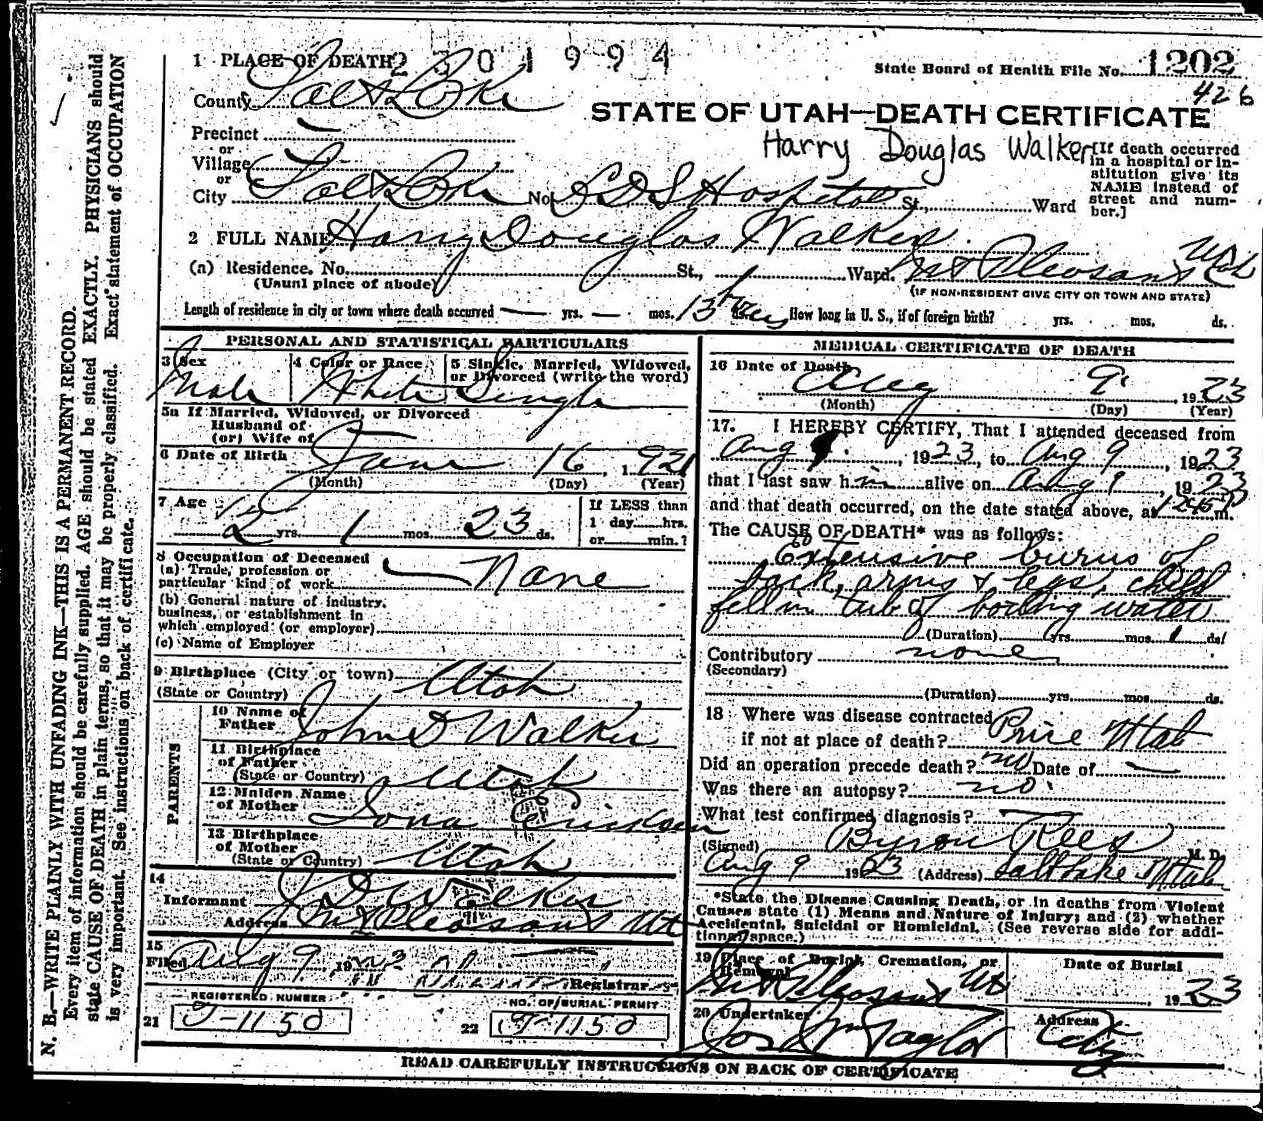 1 PLACE OF DEATH 2301994
State Board of Health File No. 1202
County Salt Lake
426
STATE OF UTAH—DEATH CERTIFICATE
Precinct
Harry Douglas Walker
[If death occurred in a hospital or institution give its NAME instead of street and number.]
or
Village
or
City Salt Lake No. LDS Hospital St., Ward
2 FULL NAME Harry Douglas Walker
(a) Residence. No. St., Ward. Mt Pleasant Utah
(Usual place of abode) (IF NON-RESIDENT GIVE CITY OR TOWN AND STATE)
Length of residence in city or town where death occurred — yrs. — mos. 13 hrs ds. How long in U. S., if of foreign birth? yrs. mos. ds.
PERSONAL AND STATISTICAL PARTICULARS
3 Sex Male
4 Color or Race White
5 Single, Married, Widowed, or Divorced (write the word) Single
5a If Married, Widowed, or Divorced
Husband of
(or) Wife of
6 Date of Birth June 16, 1921
(Month) (Day) (Year)
7 Age 2 yrs. 1 mos. 23 ds.
If LESS than
1 day hrs.
or min.?
8 Occupation of Deceased
(a) Trade, profession or
particular kind of work None
(b) General nature of industry,
business, or establishment in
which employed (or employer)
(c) Name of Employer
9 Birthplace (City or town) Utah
(State or Country)
PARENTS
10 Name of
Father John D Walker
11 Birthplace
of Father
(State or Country) Utah
12 Maiden Name
of Mother Iona Ericksen
13 Birthplace
of Mother
(State or Country) Utah
14
Informant J D Walker
Address Mt Pleasant Ut
15
Filed Aug 9, 1923
Registrar
REGISTERED NUMBER
21 T-1150
NO. OF BURIAL PERMIT
22 T-1150
MEDICAL CERTIFICATE OF DEATH
16 Date of Death Aug 9 1923
(Month) (Day) (Year)
17. I HEREBY CERTIFY, That I attended deceased from
Aug 9, 1923, to Aug 9, 1923
that I last saw him alive on Aug 9, 1923
and that death occurred, on the date stated above, at m.
The CAUSE OF DEATH* was as follows:
Extensive burns of
back, arms & legs, child
fell in tub of boiling water
(Duration) yrs. mos. 1 ds.
Contributory none
(Secondary)
(Duration) yrs. mos. ds.
18 Where was disease contracted
if not at place of death? Price Utah
Did an operation precede death? no Date of —
Was there an autopsy? no.
What test confirmed diagnosis?
(Signed) Byron Rees M. D.
Aug 9 1923 (Address) Salt Lake Utah
*State the Disease Causing Death, or in deaths from Violent
Causes state (1) Means and Nature of Injury; and (2) whether
Accidental, Suicidal or Homicidal. (See reverse side for addi-
tional space.)
19 Place of Burial, Cremation, or
Removal Mt Pleasant Ut
Date of Burial
1923
20 Undertaker Jos Wm Taylor
Address City
READ CAREFULLY INSTRUCTIONS ON BACK OF CERTIFICATE
N. B.—WRITE PLAINLY WITH UNFADING INK—THIS IS A PERMANENT RECORD.
Every item of information should be carefully supplied. AGE should be stated EXACTLY. PHYSICIANS should
state CAUSE OF DEATH in plain terms, so that it may be properly classified. Exact statement of OCCUPATION
is very important. See instructions on back of certificate.